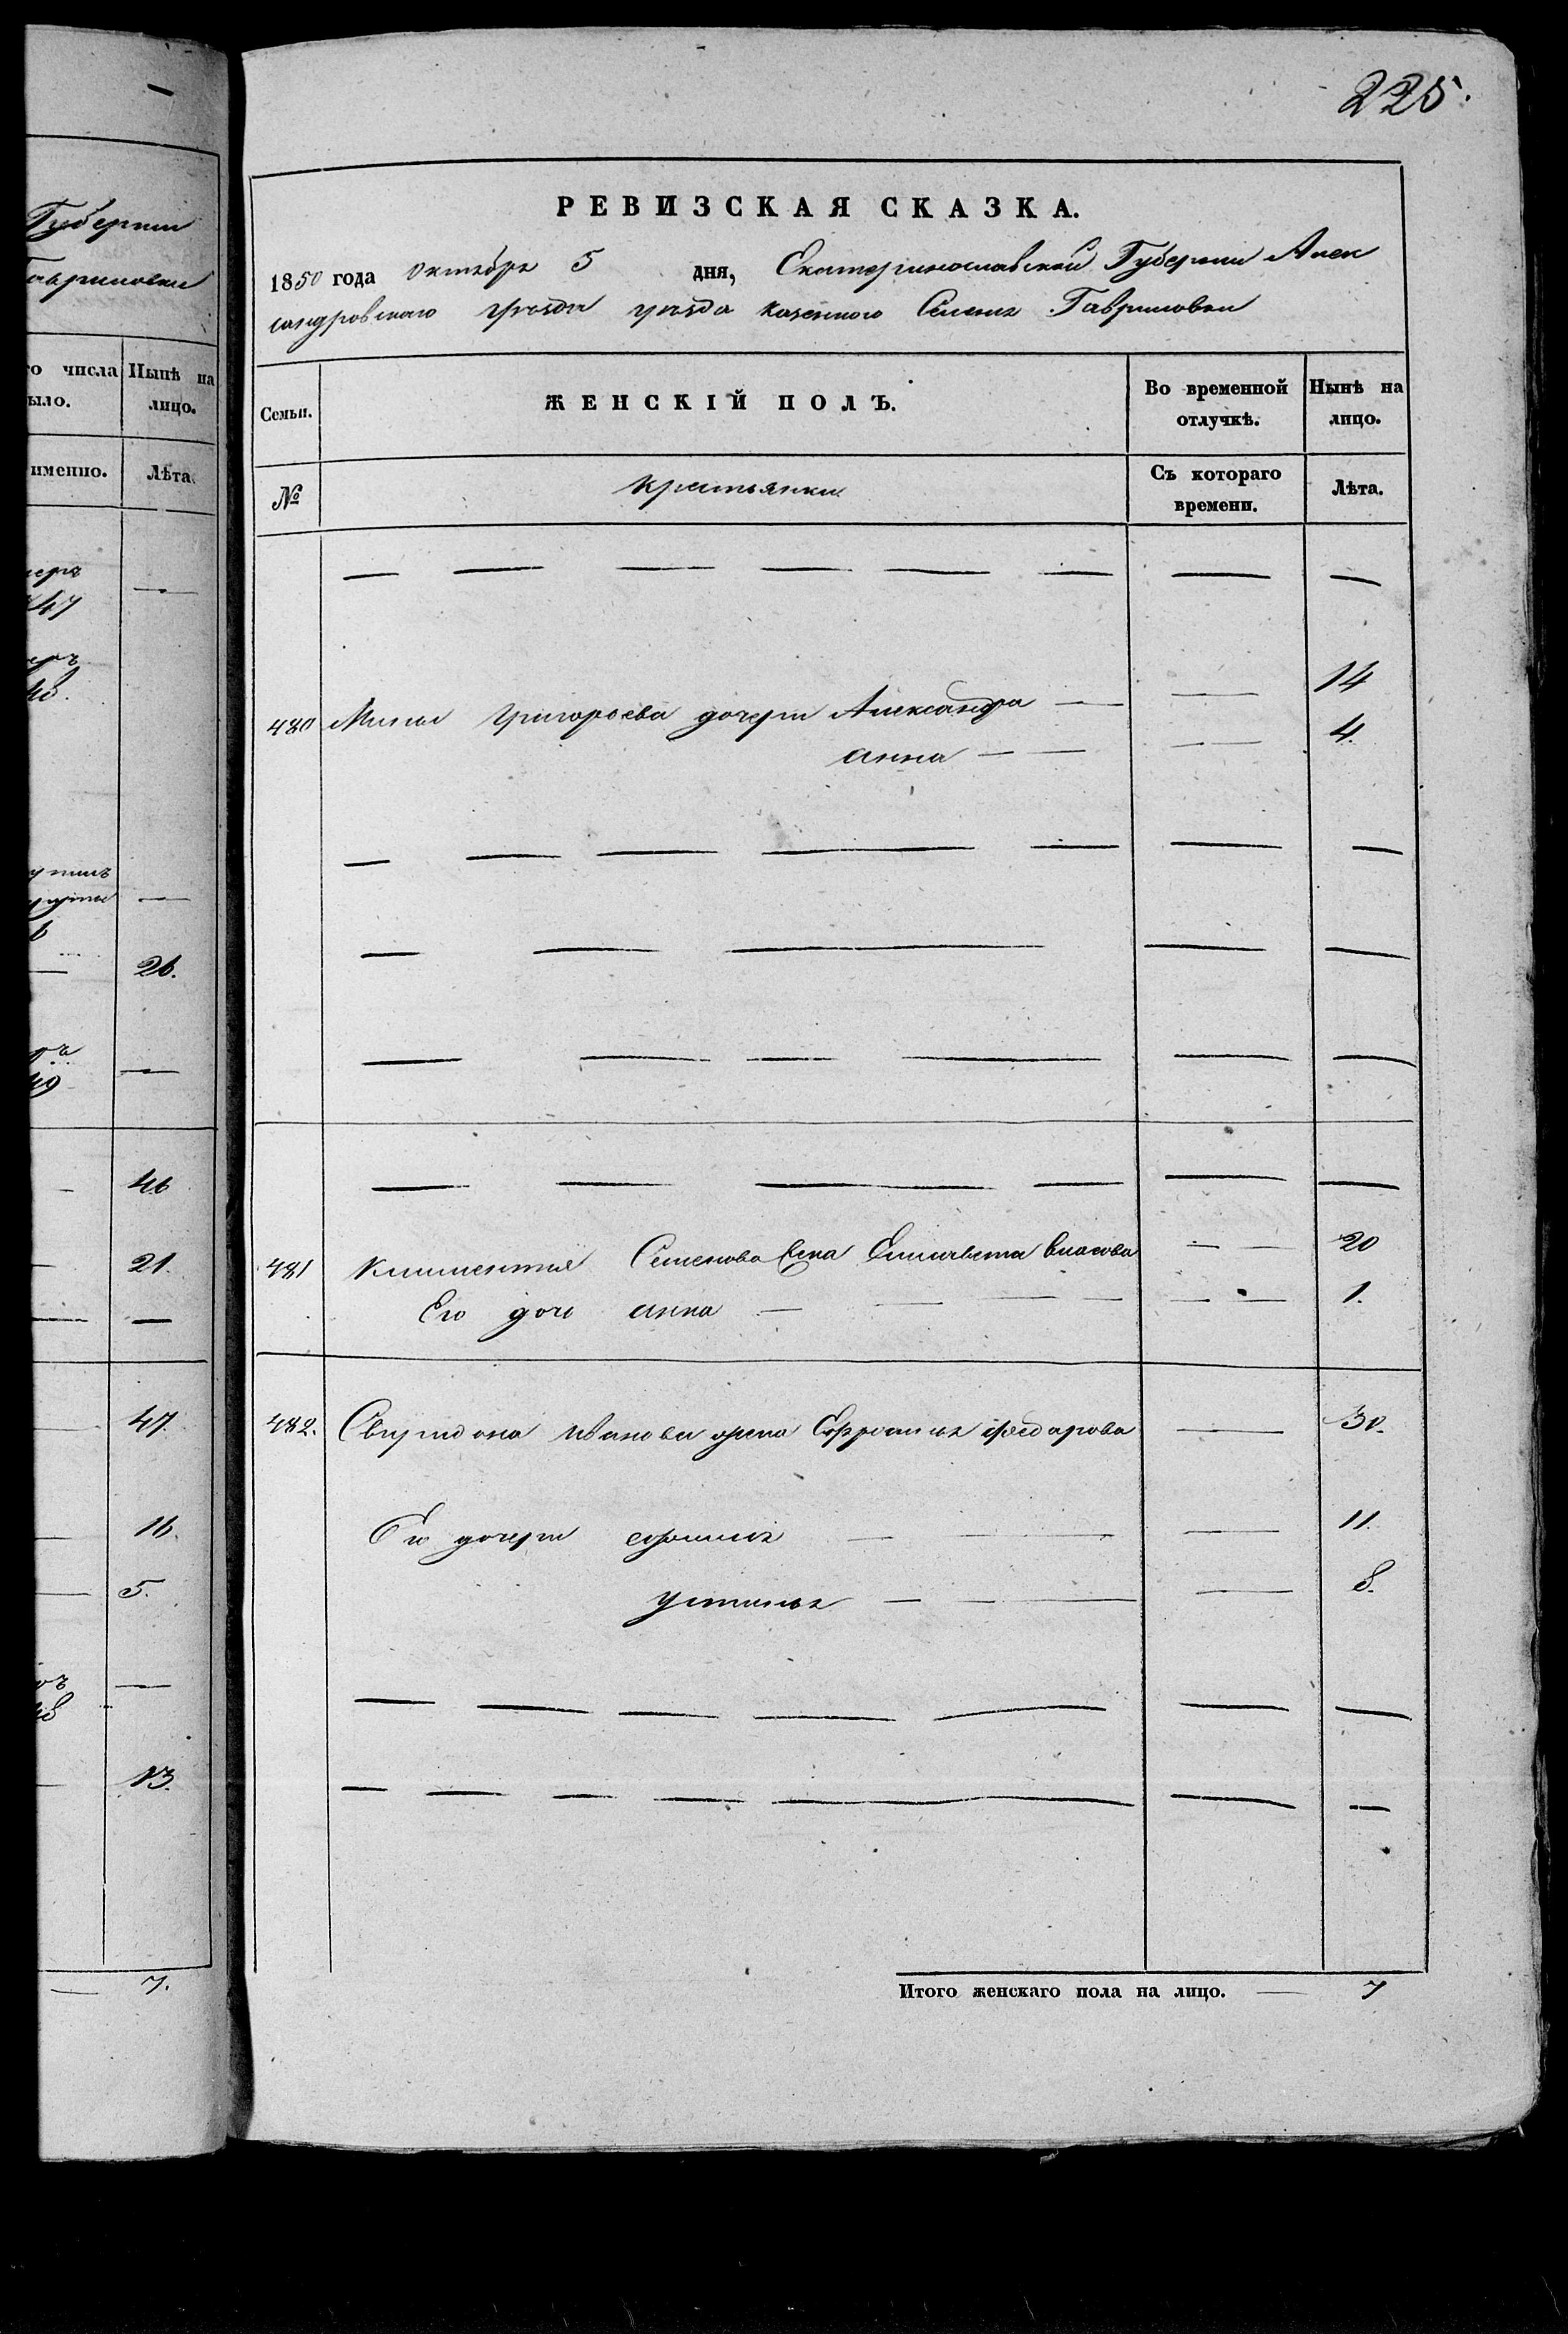 Губернии
Гавриловки
го числа Нынѣ на
ыло. лицо.
именно. Лѣта.
меръ
47
еръ
48.
26.
49
46
21.
47.
16.
5.
48
13.
7.
225.
РЕВИЗСКАЯ СКАЗКА.
1850 года Октября 5 дня, Екатеринославской Губернии Алек
сандровского уезда уезда казенного Селения Гавриловки
Семьи. ЖЕНСКІЙ ПОЛЪ. Во временной отлучкѣ. Нынѣ на лицо.
№ крестьянки Съ котораго времени. Лѣта.
480 Мины Григорьева дочери Александра — — 14
анна — — — — 4.
481 Климентия Семенова Елисавета власова — — 20
Его дочь анна — — — — — — 1.
482. Свиридона Иванова жена Ефросинья федарова — 30.
Его дочери — — — 11.
устинья — — — — 8.
Итого женскаго пола на лицо. — 7